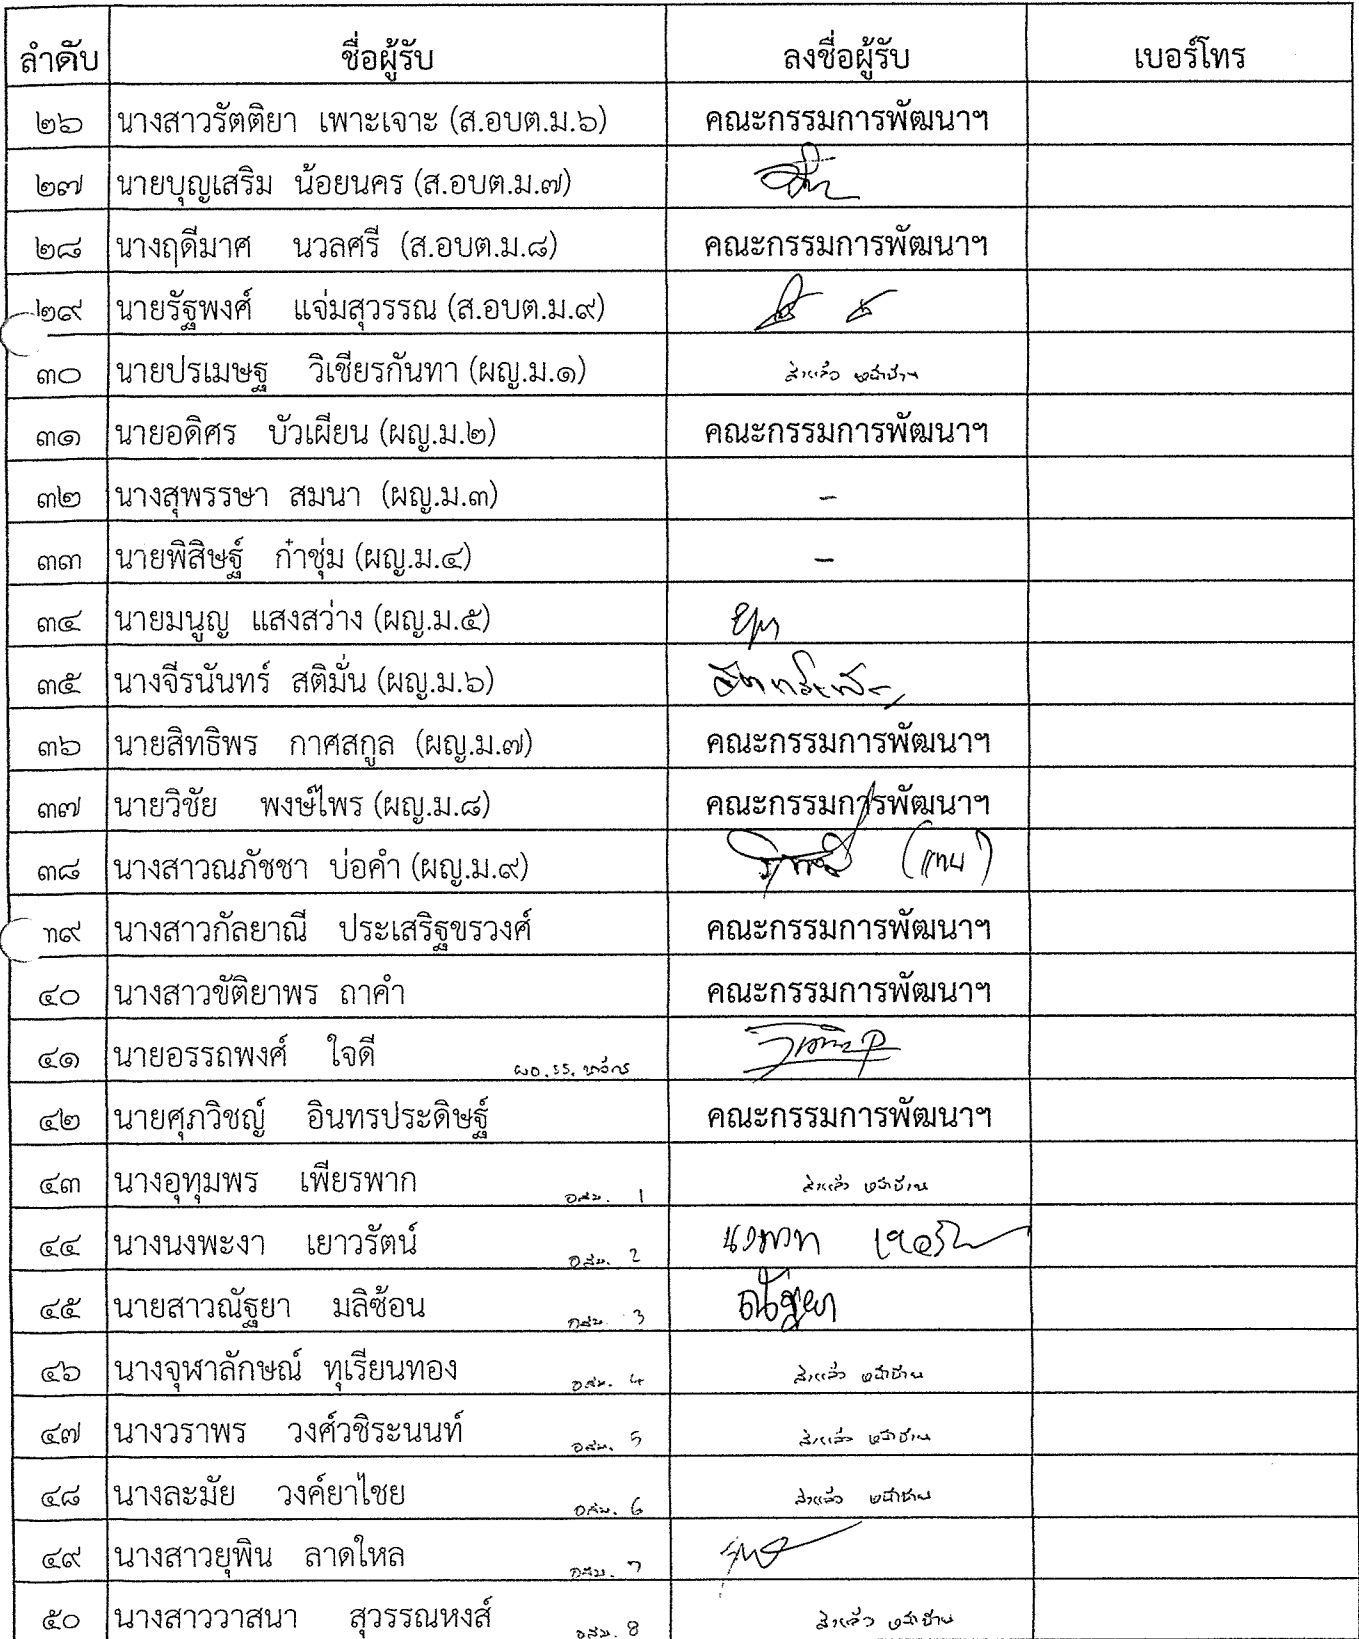 ลำดับ ชื่อผู้รับ ลงชื่อผู้รับ เบอร์โทร
๒๖ นางสาวรัตติยา เพาะเจาะ (ส.อบต.ม.๖) คณะกรรมการพัฒนาฯ
๒๗ นายบุญเสริม น้อยนคร (ส.อบต.ม.๗)
๒๘ นางฤดีมาศ นวลศรี (ส.อบต.ม.๘) คณะกรรมการพัฒนาฯ
๒๙ นายรัฐพงศ์ แจ่มสุวรรณ (ส.อบต.ม.๙)
๓๐ นายปรเมษฐ วิเชียรกันทา (ผญ.ม.๑)
๓๑ นายอดิศร บัวเผียน (ผญ.ม.๒) คณะกรรมการพัฒนาฯ
๓๒ นางสุพรรษา สมนา (ผญ.ม.๓) -
๓๓ นายพิสิษฐ์ ก๋าชุ่ม (ผญ.ม.๔) -
๓๔ นายมนูญ แสงสว่าง (ผญ.ม.๕)
๓๕ นางจีรนันทร์ สติมั่น (ผญ.ม.๖)
๓๖ นายสิทธิพร กาศสกูล (ผญ.ม.๗) คณะกรรมการพัฒนาฯ
๓๗ นายวิชัย พงษ์ไพร (ผญ.ม.๘) คณะกรรมการพัฒนาฯ
๓๘ นางสาวณภัชชา บ่อคำ (ผญ.ม.๙) (แทน)
๓๙ นางสาวกัลยาณี ประเสริฐขรวงศ์ คณะกรรมการพัฒนาฯ
๔๐ นางสาวขัติยาพร ถาคำ คณะกรรมการพัฒนาฯ
๔๑ นายอรรถพงศ์ ใจดี ผอ.รร.
๔๒ นายศุภวิชญ์ อินทรประดิษฐ์ คณะกรรมการพัฒนาฯ
๔๓ นางอุทุมพร เพียรพาก อสม. 1
๔๔ นางนงพะงา เยาวรัตน์ อสม. 2
๔๕ นายสาวณัฐยา มลิซ้อน อสม. 3 ณัฐยา
๔๖ นางจุฬาลักษณ์ ทุเรียนทอง อสม. 4
๔๗ นางวราพร วงศ์วชิระนนท์ อสม. 5
๔๘ นางละมัย วงค์ยาไชย อสม. 6
๔๙ นางสาวยุพิน ลาดใหล อสม. 7
๕๐ นางสาววาสนา สุวรรณหงส์ อสม. 8